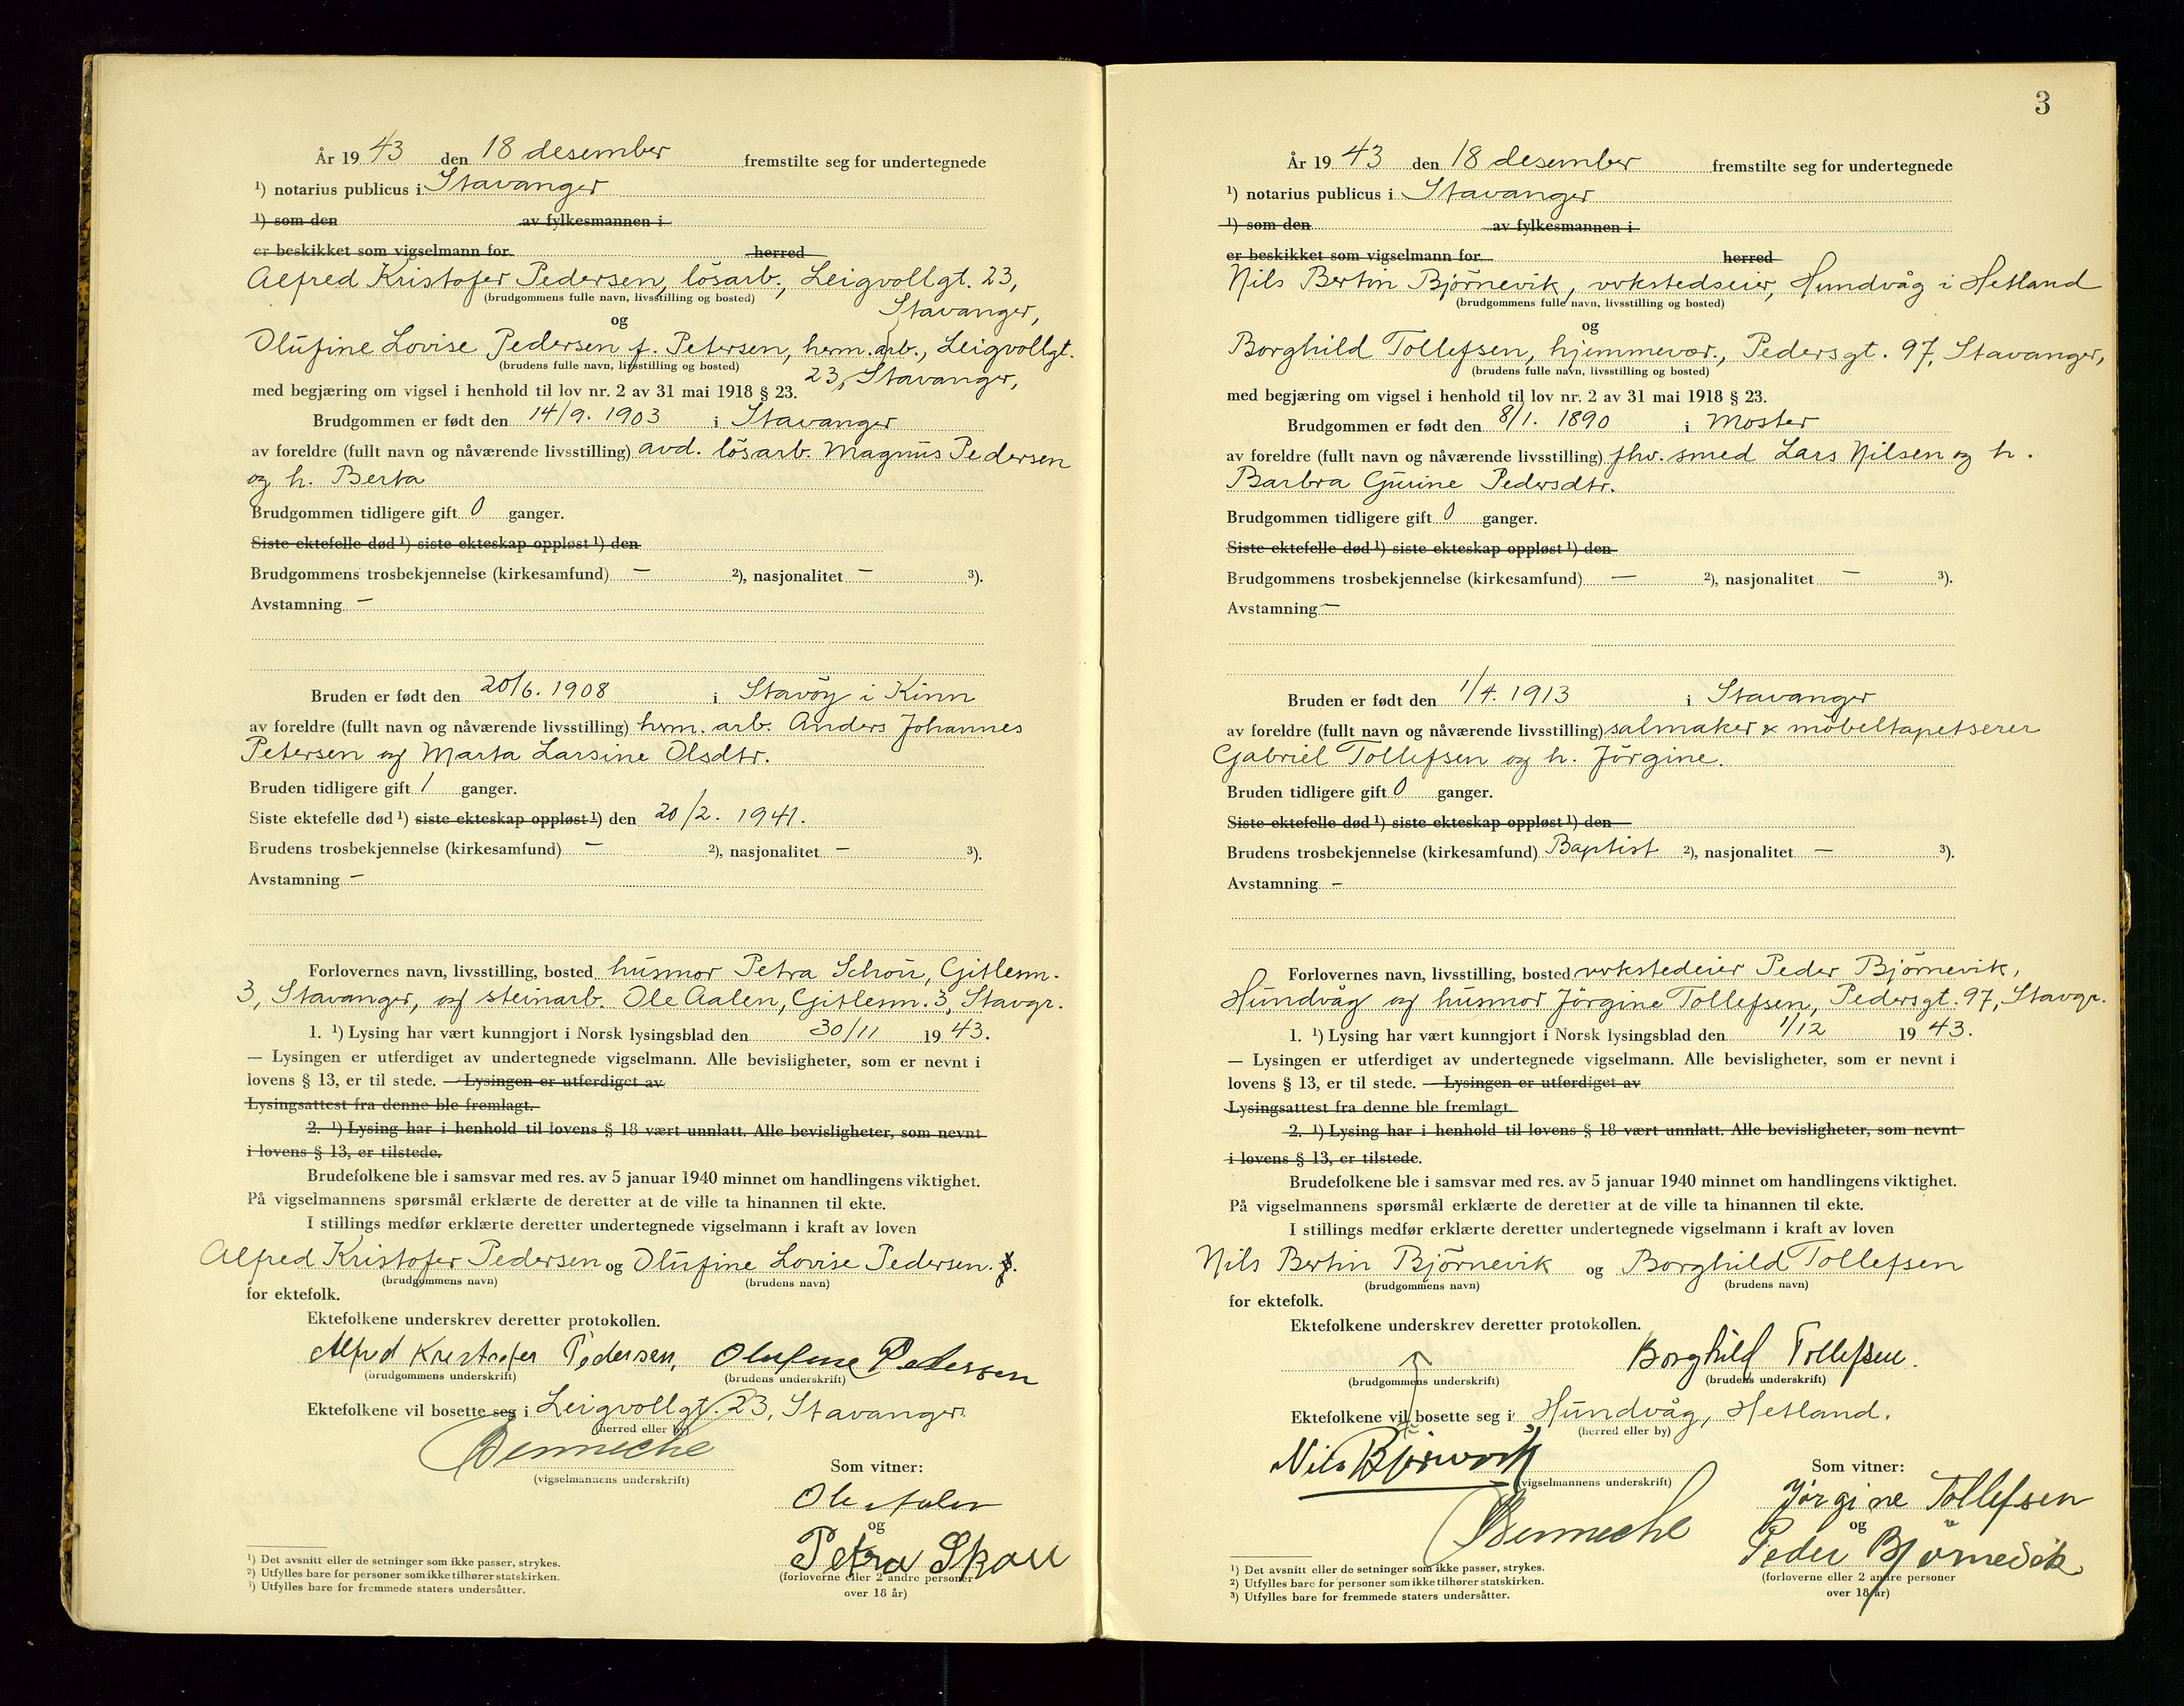 År 19 43 den 18 desember fremstilte seg for undertegnede
¹) notarius publicus i Stavanger
¹) som den av fylkesmannen i
er beskikket som vigselmann for herred
Alfred Kristofer Pedersen, lösarb., Leigvollgt. 23,
(brudgommens fulle navn, livsstilling og bosted)
Stavanger,
og
Olufine Lovise Pedersen f. Petersen, herm.arb., Leigvollgt.
(brudens fulle navn, livsstilling og bosted)
23, Stavanger,
med begjæring om vigsel i henhold til lov nr. 2 av 31 mai 1918 § 23.
Brudgommen er født den 14/9. 1903 i Stavanger
av foreldre (fullt navn og nåværende livsstilling) avd. lösarb. Magnus Pedersen
og h. Berta
Brudgommen tidligere gift 0 ganger.
Siste ektefelle død ¹) siste ekteskap oppløst ¹) den
Brudgommens trosbekjennelse (kirkesamfund) — ²), nasjonalitet — ³).
Avstamning —
Bruden er født den 20/6. 1908 i Stavöy i Kinn
av foreldre (fullt navn og nåværende livsstilling) herm. arb. Anders Johannes
Petersen og Marta Larsine Olsdtr.
Bruden tidligere gift 1 ganger.
Siste ektefelle død ¹) siste ekteskap oppløst ¹) den 20/2. 1941.
Brudens trosbekjennelse (kirkesamfund) — ²), nasjonalitet — ³).
Avstamning —
Forlovernes navn, livsstilling, bosted husmor Petra Schou, Gitlesm.
3, Stavanger, og steinarb. Ole Aalen, Gitlesm. 3, Stavgr.
1. ¹) Lysing har vært kunngjort i Norsk lysingsblad den 30/11 19 43.
— Lysingen er utferdiget av undertegnede vigselmann. Alle bevisligheter, som er nevnt i
lovens § 13, er til stede. — Lysingen er utferdiget av
Lysingsattest fra denne ble fremlagt.
2. ¹) Lysing har i henhold til lovens § 18 vært unnlatt. Alle bevisligheter, som nevnt
i lovens § 13, er tilstede.
Brudefolkene ble i samsvar med res. av 5 januar 1940 minnet om handlingens viktighet.
På vigselmannens spørsmål erklærte de deretter at de ville ta hinannen til ekte.
I stillings medfør erklærte deretter undertegnede vigselmann i kraft av loven
Alfred Kristofer Pedersen og Olufine Lovise Pedersen.
(brudgommens navn) (brudens navn)
for ektefolk.
Ektefolkene underskrev deretter protokollen.
Alfred Kristofer Pedersen, Olufine Pedersen
(brudgommens underskrift) (brudens underskrift)
Ektefolkene vil bosette seg i Leigvollgt. 23, Stavanger.
(herred eller by)
Denneche
(vigselmannens underskrift)
Som vitner:
Ole Aalen
og
Petra Skou
(forloverne eller 2 andre personer
over 18 år)
¹) Det avsnitt eller de setninger som ikke passer, strykes.
²) Utfylles bare for personer som ikke tilhører statskirken.
³) Utfylles bare for fremmede staters undersåtter.
3
År 19 43 den 18 desember fremstilte seg for undertegnede
¹) notarius publicus i Stavanger
¹) som den av fylkesmannen i
er beskikket som vigselmann for herred
Nils Bertin Björnevik, verkstedseier, Hundvåg i Hetland
(brudgommens fulle navn, livsstilling og bosted)
og
Borghild Tollefsen, hjemmevær., Pedersgt. 97, Stavanger,
(brudens fulle navn, livsstilling og bosted)
med begjæring om vigsel i henhold til lov nr. 2 av 31 mai 1918 § 23.
Brudgommen er født den 8/1. 1890 i Moster
av foreldre (fullt navn og nåværende livsstilling) fhv. smed Lars Nilsen og h.
Barbra Gurine Pedersdtr.
Brudgommen tidligere gift 0 ganger.
Siste ektefelle død ¹) siste ekteskap oppløst ¹) den
Brudgommens trosbekjennelse (kirkesamfund) — ²), nasjonalitet — ³).
Avstamning —
Bruden er født den 1/4. 1913 i Stavanger
av foreldre (fullt navn og nåværende livsstilling) salmaker & möbeltapetserer
Gabriel Tollefsen og h. Jörgine.
Bruden tidligere gift 0 ganger.
Siste ektefelle død ¹) siste ekteskap oppløst ¹) den
Brudens trosbekjennelse (kirkesamfund) Baptist ²), nasjonalitet — ³).
Avstamning —
Forlovernes navn, livsstilling, bosted verkstedeier Peder Björnevik,
Hundvåg og husmor Jörgine Tollefsen, Pedersgt. 97, Stavgr.
1. ¹) Lysing har vært kunngjort i Norsk lysingsblad den 1/12 19 43.
— Lysingen er utferdiget av undertegnede vigselmann. Alle bevisligheter, som er nevnt i
lovens § 13, er til stede. — Lysingen er utferdiget av
Lysingsattest fra denne ble fremlagt.
2. ¹) Lysing har i henhold til lovens § 18 vært unnlatt. Alle bevisligheter, som nevnt
i lovens § 13, er tilstede.
Brudefolkene ble i samsvar med res. av 5 januar 1940 minnet om handlingens viktighet.
På vigselmannens spørsmål erklærte de deretter at de ville ta hinannen til ekte.
I stillings medfør erklærte deretter undertegnede vigselmann i kraft av loven
Nils Bertin Björnevik og Borghild Tollefsen
(brudgommens navn) (brudens navn)
for ektefolk.
Ektefolkene underskrev deretter protokollen.
Borghild Tollefsen.
(brudgommens underskrift) (brudens underskrift)
Ektefolkene vil bosette seg i Hundvåg, Hetland.
(herred eller by)
Nils Björnevik
(vigselmannens underskrift)
Denneche
Som vitner:
Jörgine Tollefsen
og
Peder Björnevik
(forloverne eller 2 andre personer
over 18 år)
¹) Det avsnitt eller de setninger som ikke passer, strykes.
²) Utfylles bare for personer som ikke tilhører statskirken.
³) Utfylles bare for fremmede staters undersåtter.